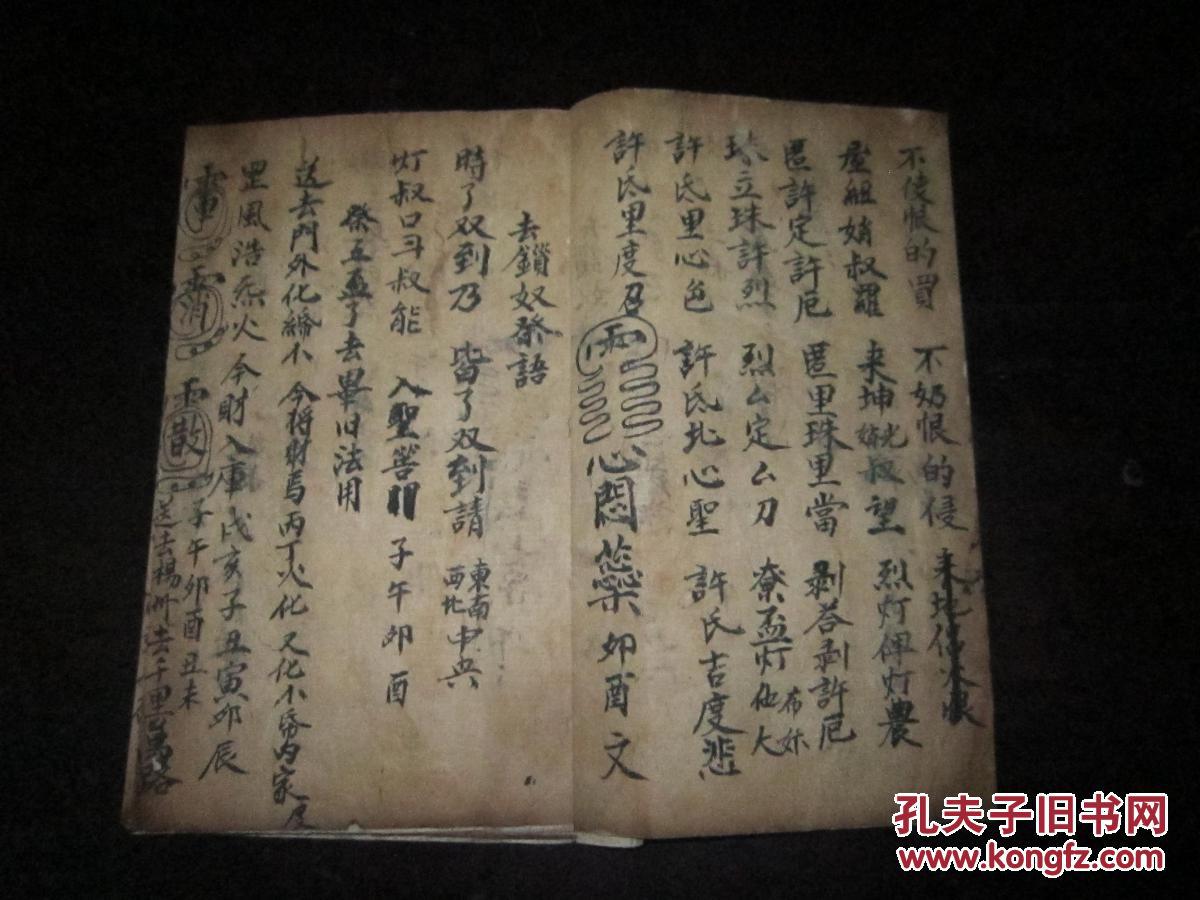 不使恨的買 不奶恨的侵
屋組娋叔羅 来坤娋光叔望 烈灯俾灯農
匿許定許厄 匿里珠里當 剥荅剥許厄
珠立珠許烈 烈厶定厶刀 尞盃灯仙大 布妹
許氏里心色 許氏北心聖 許氏吉度悲
許氏里度召 心悶藥 卯酉文
去鎖奴祭語
時了双到乃 皆了双到請 東南西北中央
灯叔口斗叔能 入聖筶 子午卯酉
祭五盃了去畢旧法用
送去門外化 今将財馬丙丁火化 又化小 内家
里風浩炁火 今財入庫 戌亥子丑寅卯辰
子午卯酉丑未
送去楊州去千里
孔夫子旧书网
www.kongfz.com